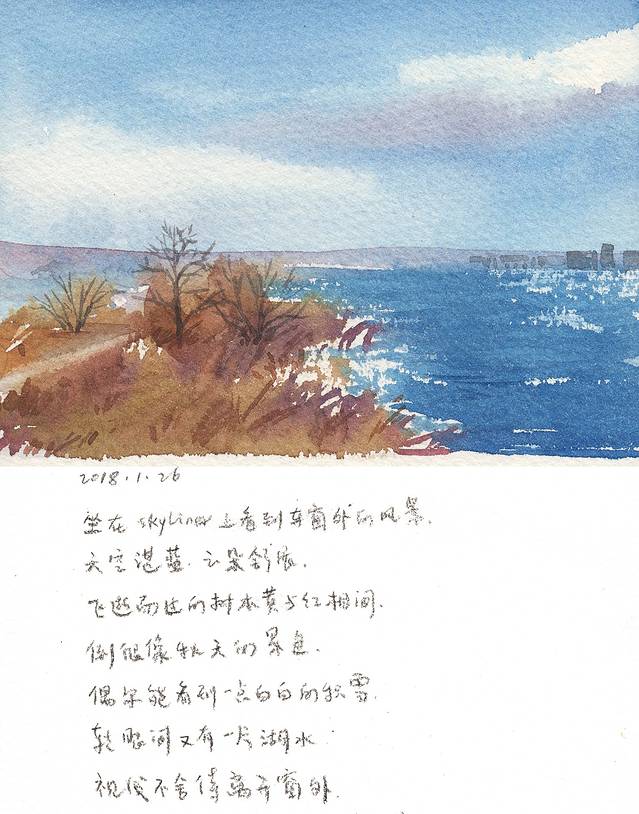 2018.1.26
坐在 skyliner 上看到车窗外的风景.
天空湛蓝. 云朵舒展.
飞逝而过的树木黄与红相间.
倒很像秋天的景色.
偶尔能看到一点白白的积雪.
转眼间又有一片湖水
视线不舍得离开窗外.